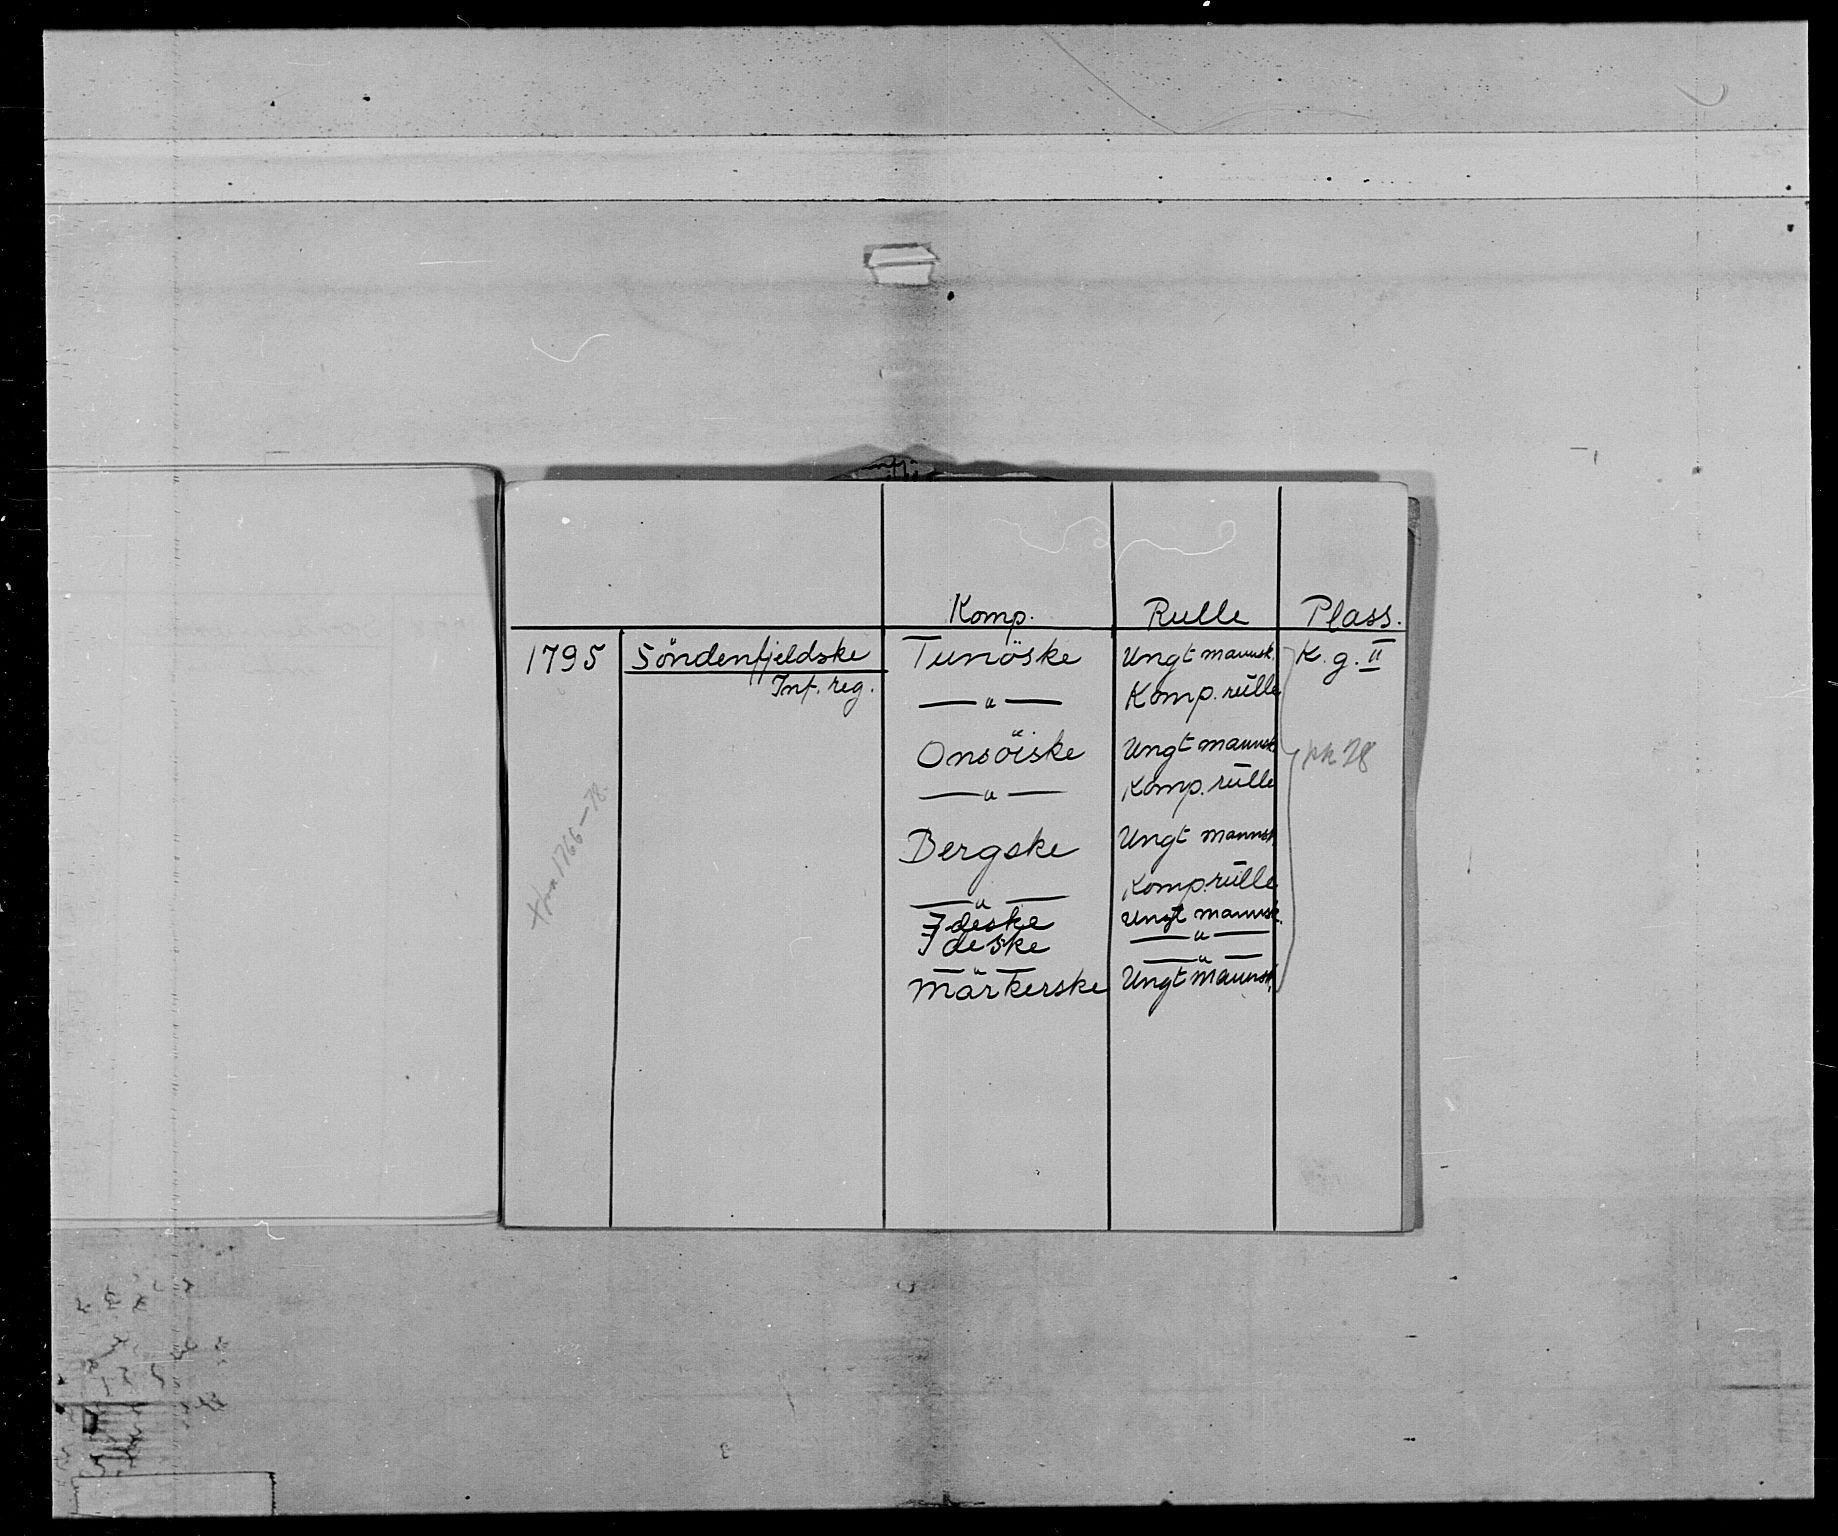 Komp. Rulle Plass.
1795 Söndenfjeldske Tunöske Ungt mannsk. K. g. II
Inf. reg. — " — Komp. rülle
Onsöiske Ungt mannsk
pk 28
— " — Komp. rülle
Bergske Ungt mannsk.
— " — Komp. rülle
Ideske Ungt mannsk.
Ideske — " —
— " — — " —
Märkerske Ungt mannsk.
1766–78.